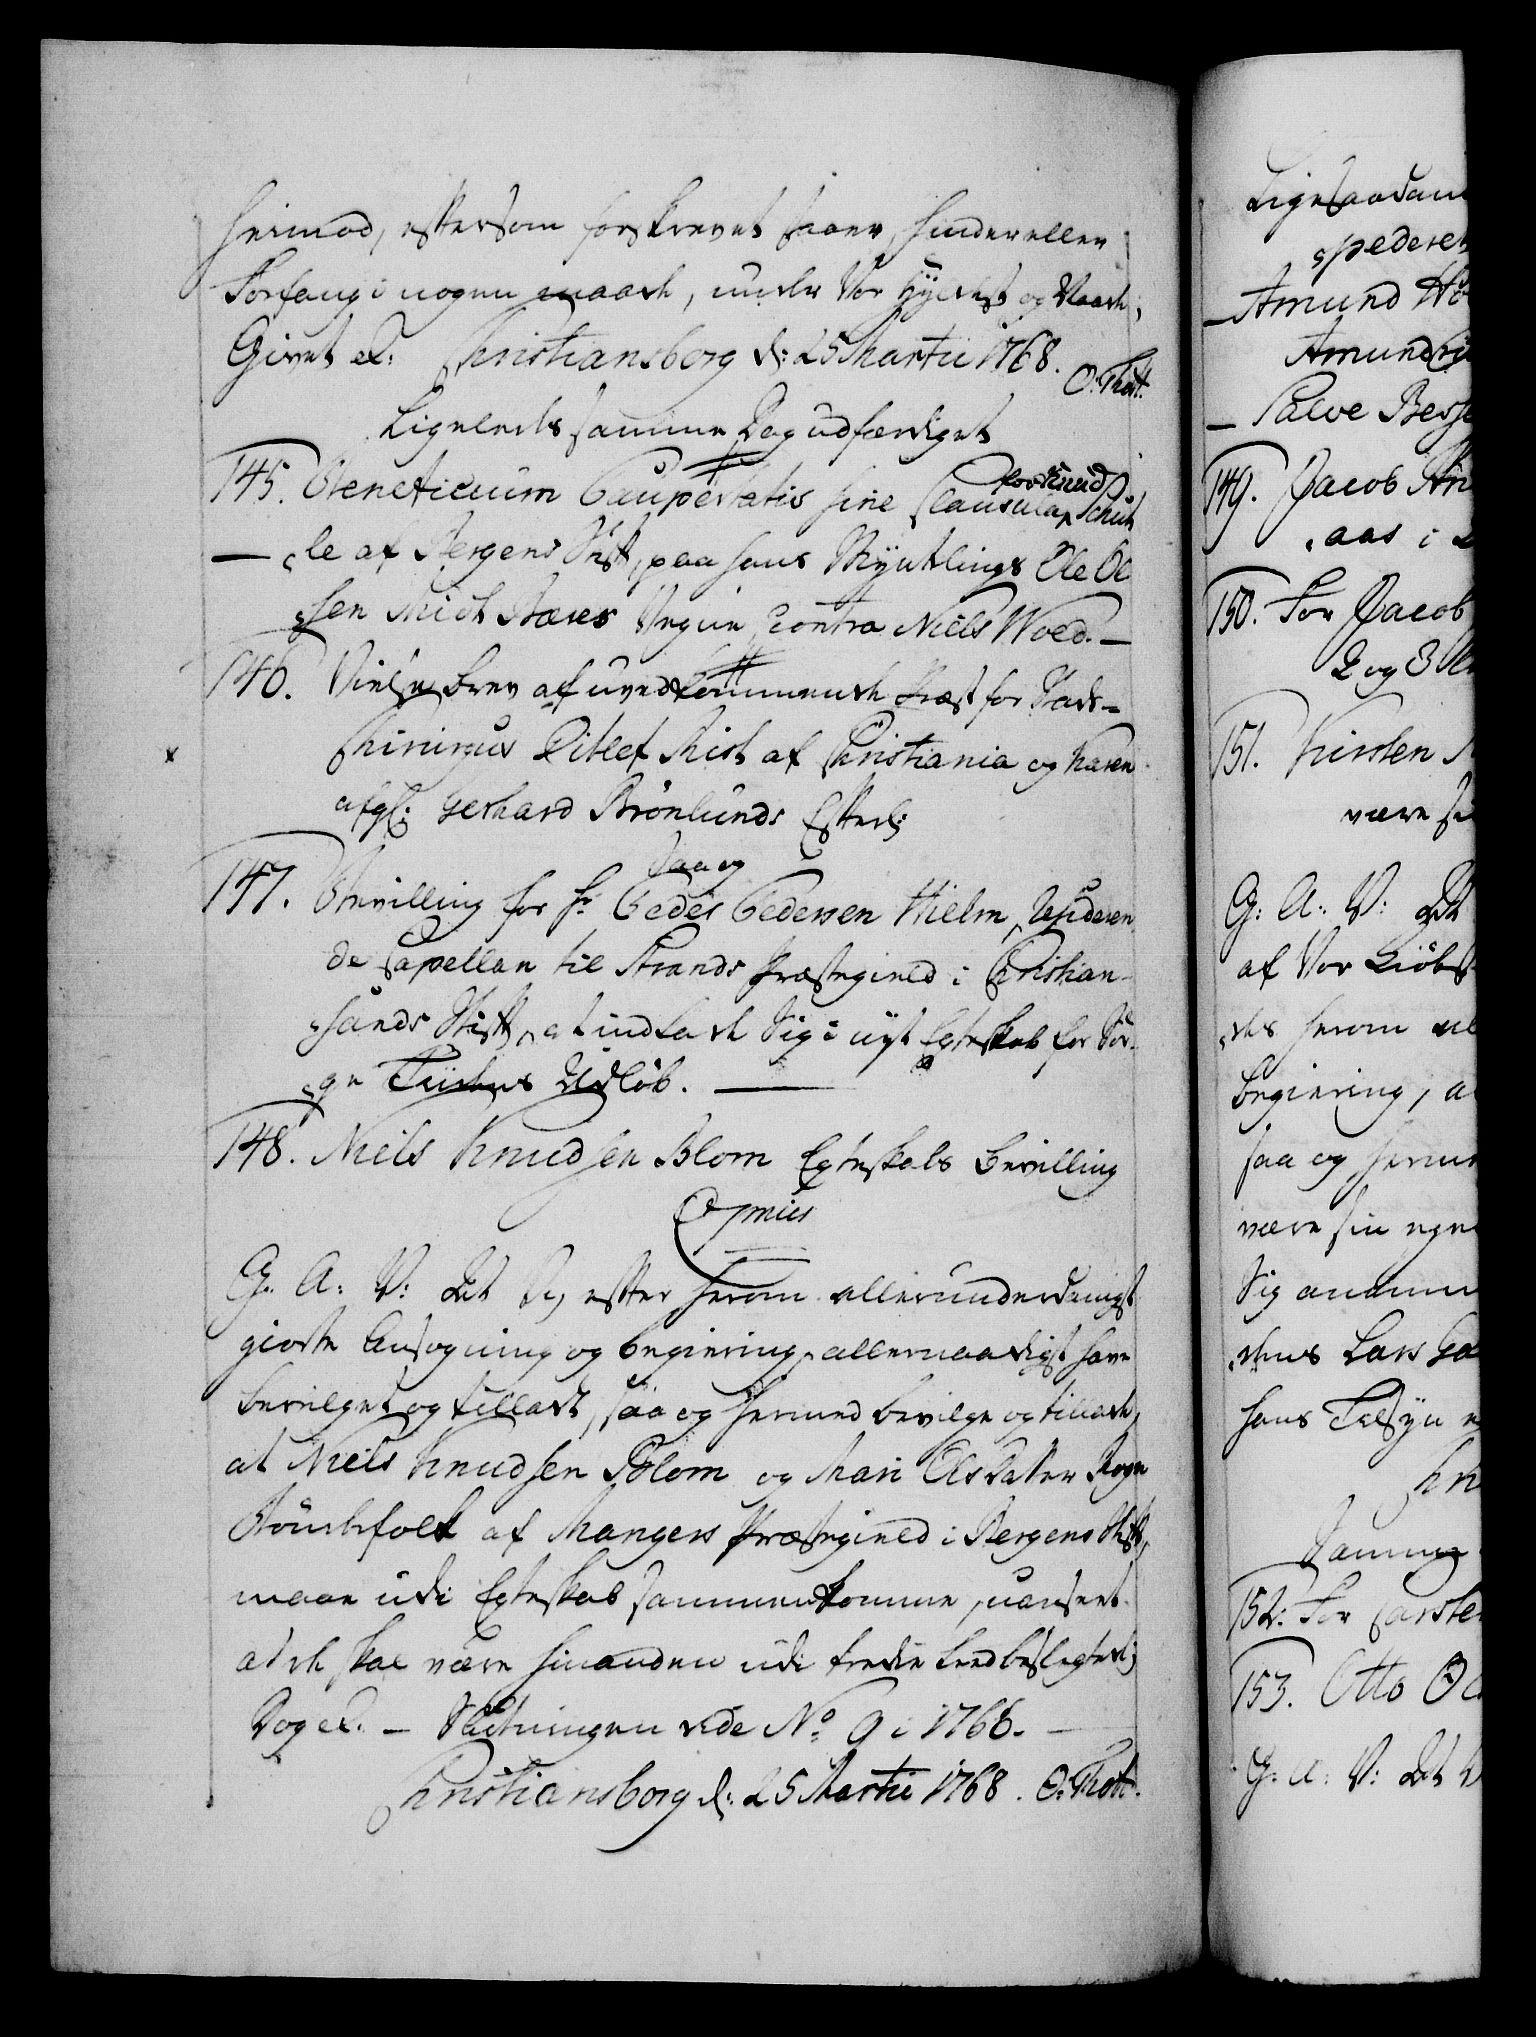 herimod, eftersom forskrevet staaer, hinder eller
Forfang i nogen maade, under Vor Hyldest og Naade;
Givet etc: Christiansborg d: 25 Martii 1768.
O: Thott.
Ligeledes samme Dag udfærdiget
145. Beneficium Paupertatis sine Clausula, for Knud Schul
le af Bergens Stift, paa hans Myntlings Ole Ol
sen Vegne contra Niels Woed. —
146. Vielse brev af uvedkommende Præst for Stads-
Chirurgus Ditlef Mish af Christiania og Karen
afgl: Gerhard Brönlunds Efterl:
147. Bevilling for Hr Peder Pedersen Hielm, Resideren
de Capellan til Strands Præstegield i Christian-
sands Stift, at indlade Sig i nyt Egteskab for Sör-
ge Tiidens Udlöb. —
148. Niels Knudsen Blom Egteskabs Bevilling
Copnies
G: A: V: At Vi, efter herom allerunderdanigst
giorte Ansøgning og begiering, allernaadigst have
bevilget og tilladt, saa og hermed bevilge og tillade,
at Niels Knudsen Blom og Mari Olsdatter Rogne
Bönderfolk af Mangers Præstegield i Bergens Stift,
maae udi Egteskab sammenkomme, uanseet
at de skal være hinanden udi tredie Leed beslegtede;
Dog etc. — Slutningen vide No 9 i 1766. —
Christiansborg d: 25 Martii 1768. O: Thott.
Ligesaadan
spederet
— Amund
Amund
— Salve
149. Jacob
aas i
150. For Jacob
2 og 3
151. Kirsten
være
G: A: V: At
af Vor
des herom
begiering, a
saa og herm
være sin egen
Sig
dens Lars
hans Tilsyn
Samme
152. For Carsten
153. Otto
G: A: V: At V